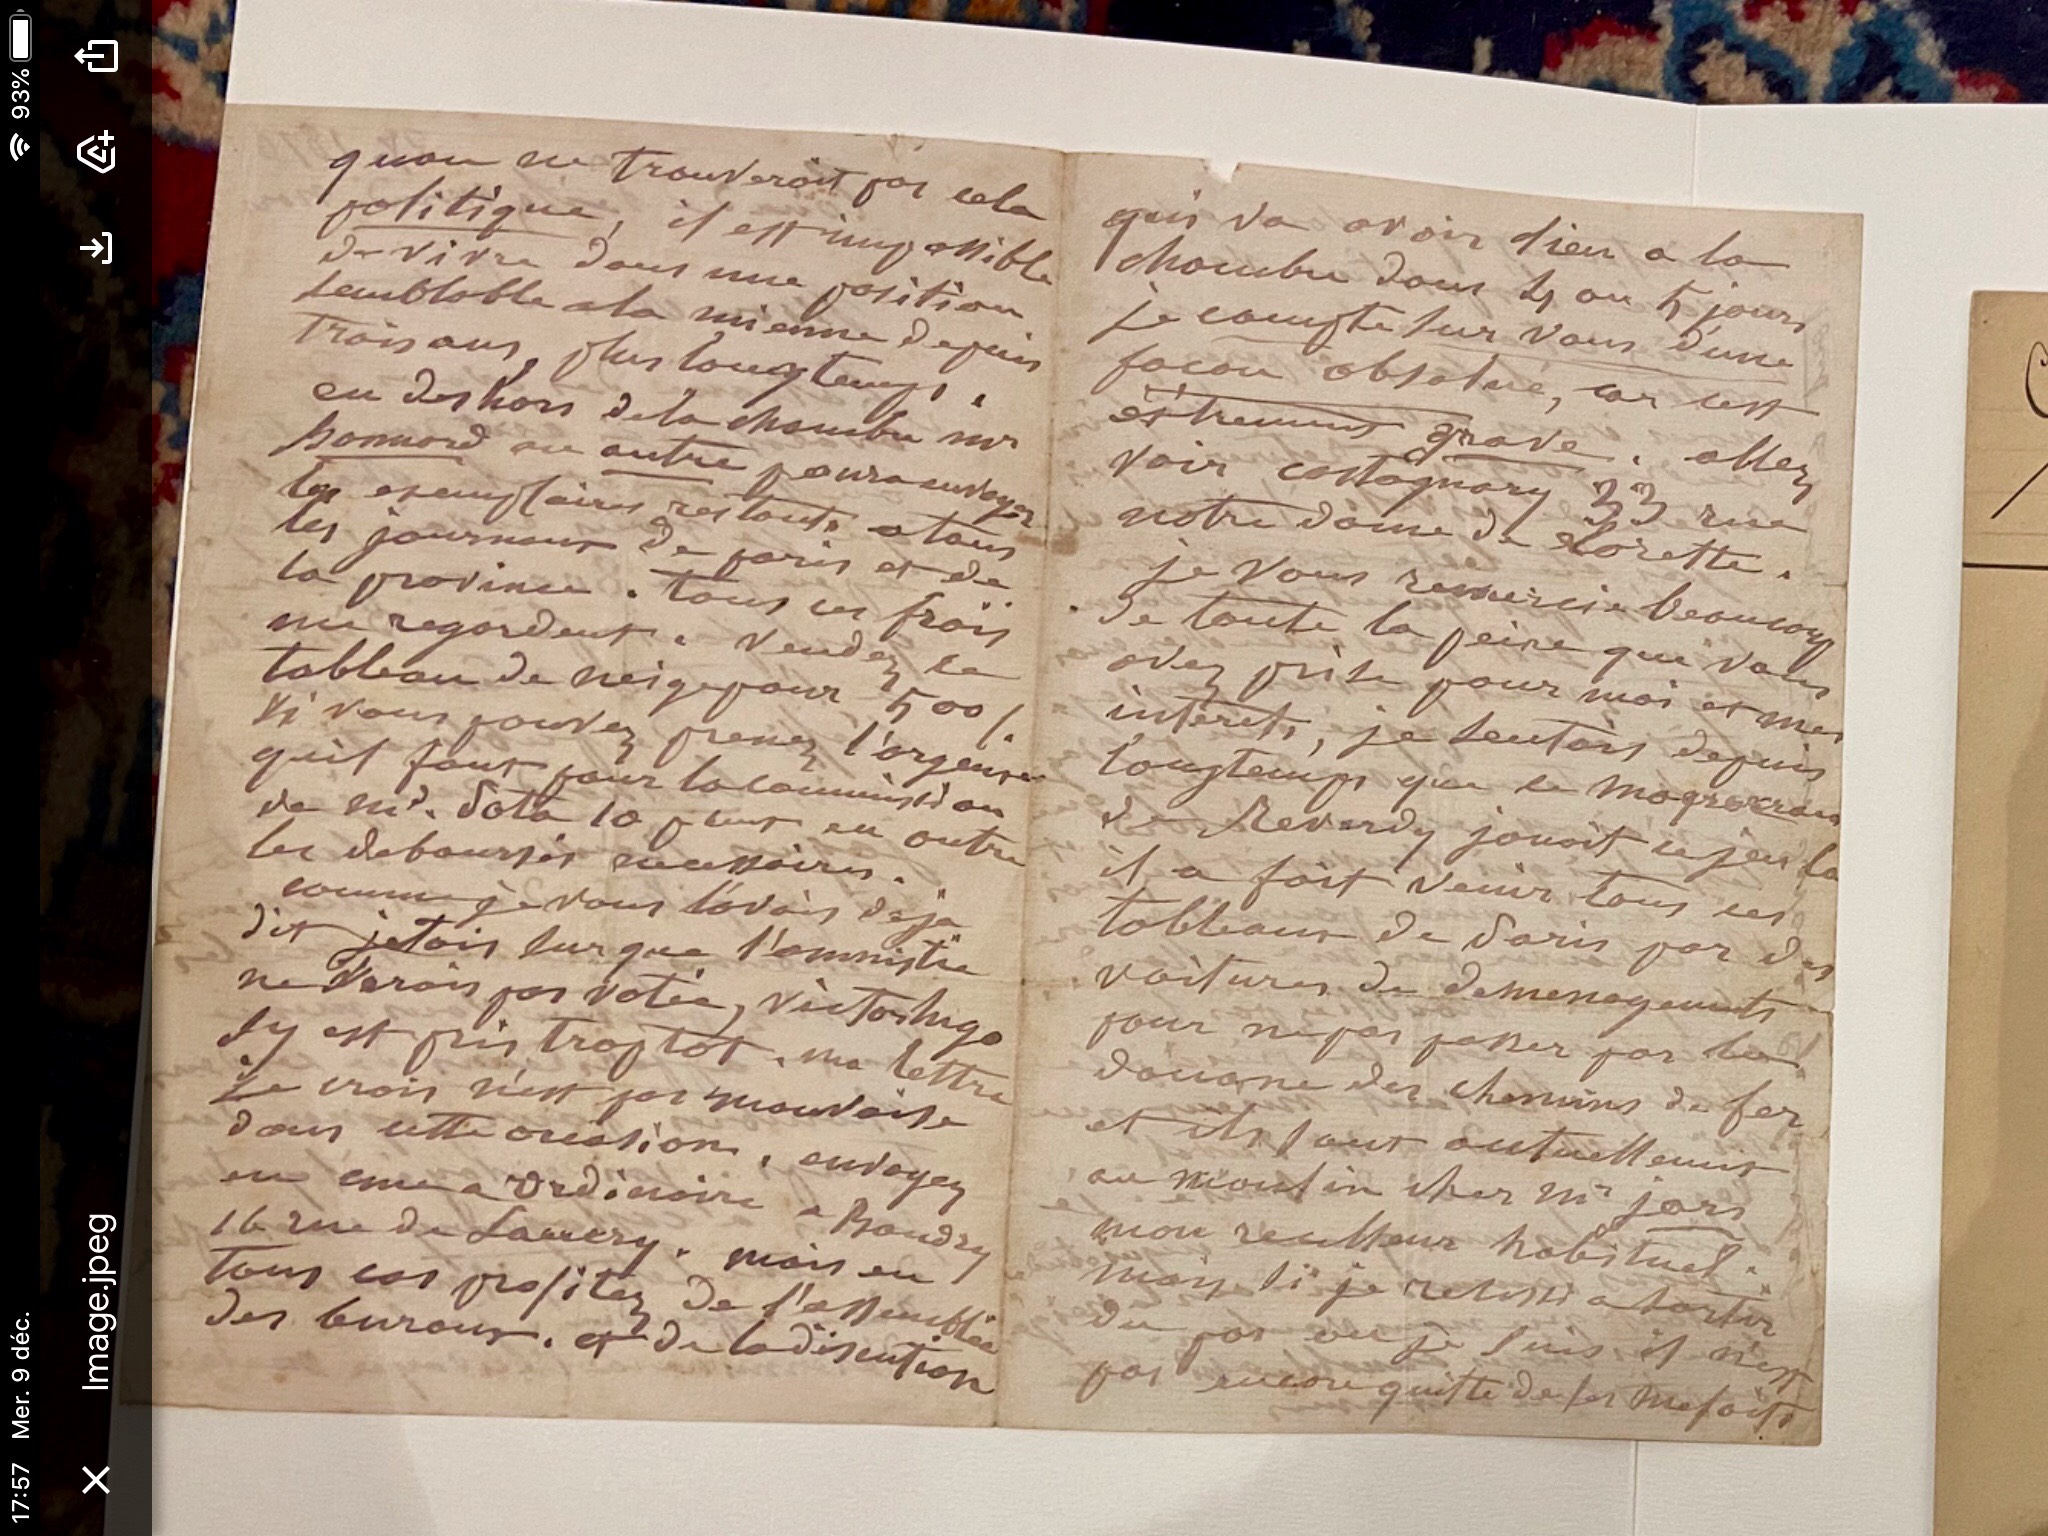 17:57 Mer. 9 déc.
93%
Image.jpeg
quon ne trouverait pas cela
politique, il est impossible
de vivre dans une position
semblable a la mienne depuis
trois ans, plus longtemps.
en deshors de la chambre mr
Bonnard ou autre poura envoyer
les exemplaires restants a tous
les journaux de paris et de
la province. tous ces frais
me regardent. Vendez le
tableau de neige pour 500 f.
si vous pouvez prenez l'argent
quil faut pour la commission
de mr. Dota 10 p cent en outre
les deboursés necessaires.
comme je vous l'avais deja
dit jetais sur que l'amnistie
ne serais pas votée, victor hugo
sy est pris trop tot. ma lettre
je crois n'est pas mauvaise
dans cette occasion. envoyez
en une a Ordinaire a Baudry
16 rue de Lancry. mais en
tous cas profitez de l'assemblée
des buraux. et de la discution
quis va avoir lieu a la
chambre dans 4 ou 5 jours
je compte sur vous d'une
facon absolue, car cest
extrement grave. allez
voir castagnary 33 rue
notre dame de Lorette.
je vous remercie beaucoup
de toute la peine que vous
avez prise pour moi et mes
interets, je sentais depuis
longtemps que le
de Reverdy jouait ce jeu la
il a fait venir tous ces
tableaux de Paris par des
voitures de demenagements
pour ne pas passer par la
douane des chemins de fer
et ils sont actuellement
au moulin cher mr jars
mon recelleur habituel.
mais si je reussi a sortir
du pas ou je suis il n'est
pas encore quitte de ses mefaits